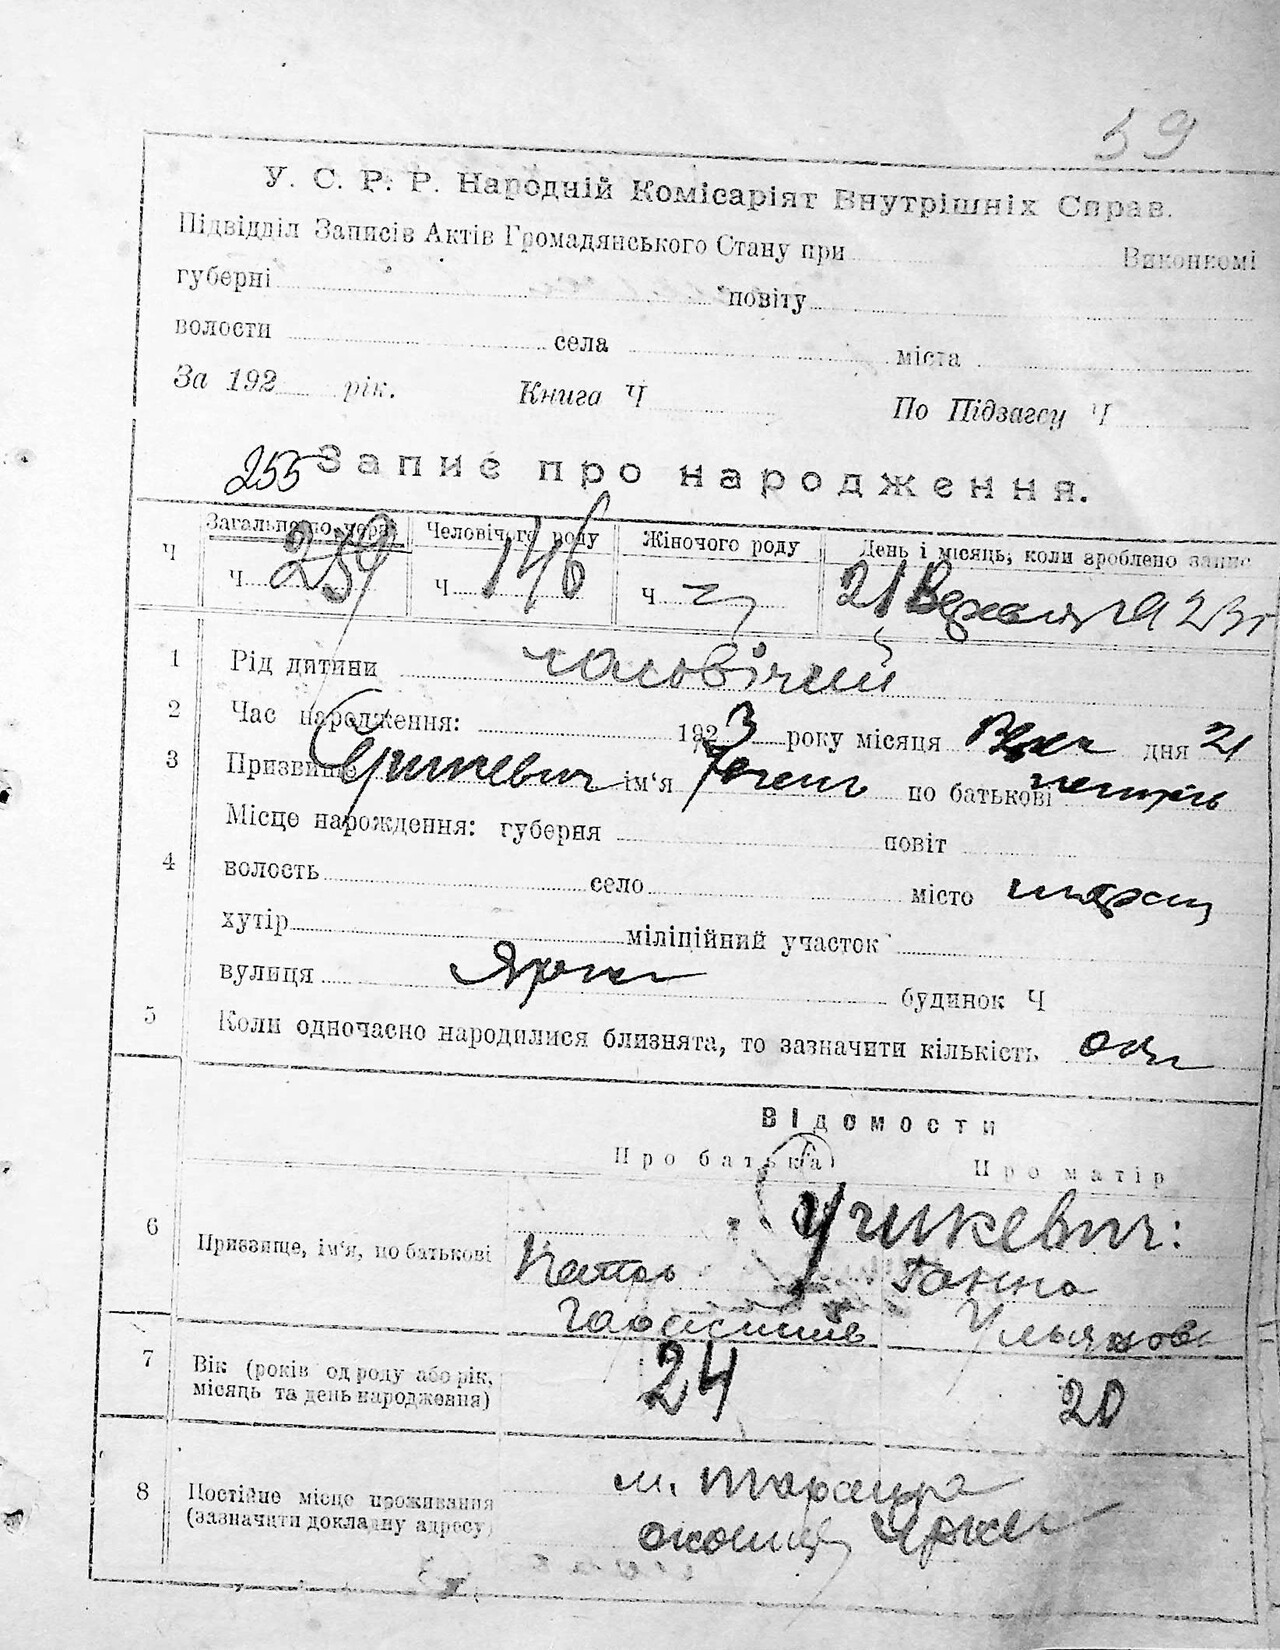 59
У. С. Р. Р. Народній Комісаріят Внутрішніх Справ.
Підвідділ Записів Актів Громадянського Стану при Виконкомі
губерні повіту
волости села міста
За 192 рік. Книга Ч По Підзагсу Ч
255 Запис про народження.
Загального черг. Человічого роду Жіночого роду День і місяць, коли зроблено запис
Ч Ч 259 Ч 146 Ч 21 1923 г
1 Рід дитини чоловічий
2 Час народження: 1923 року місяця дня 21
3 Призвище ім'я по батькові
Місце народження: губерня повіт
4 волость село місто
хутір міліційний участок
вулиця Ярки будинок Ч
5 Коли одночасно народилися близнята, то зазначити кількість
Відомости
Про батька Про матір
6 Призвище, ім'я, по батькові
Петро Ганна
7 Вік (років од роду або рік, місяць та день народження) 24 20
8 Постійне місце проживання м. Тараща
(зазначити докладну адресу) Ярки